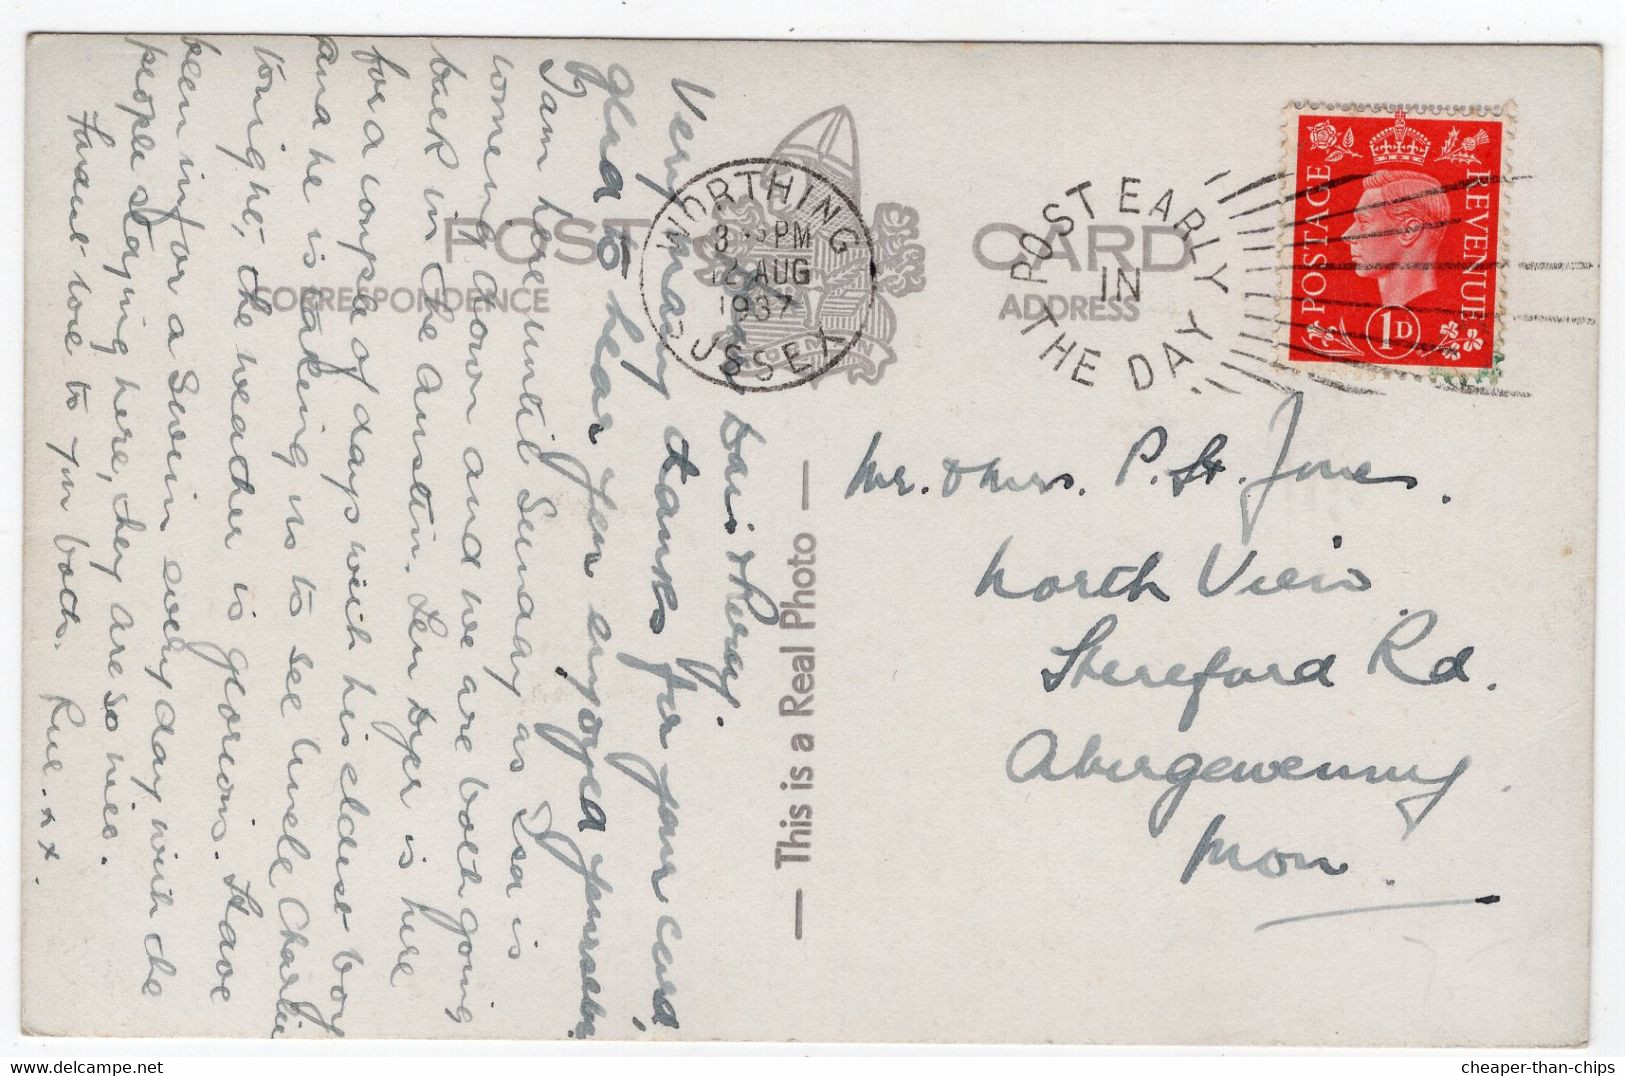 POST CARD
CORRESPONDENCE
ADDRESS
WORTHING
3 45 PM
12 AUG
1937
SUSSEX
POST EARLY
IN
THE DAY
POSTAGE
REVENUE
1D
— This is a Real Photo —
Mr. & Mrs. P. St. Jones.
North View
Hereford Rd.
Abergavenny
Mon.
My dear Doris & Percy.
Very many thanks for your card,
glad to hear you enjoyed yourselves.
I am here until Sunday as Isa is
coming down and we are both going
back in the Austin. Len Dyer is here
for a couple of days with his eldest boy
and he is taking us to see Uncle Charlie
tonight, the weather is glorious. Have
been in for a swim every day with the
people staying here, they are so nice.
Fondest love to you both. Rue. x x x.
cheaper-than-chips